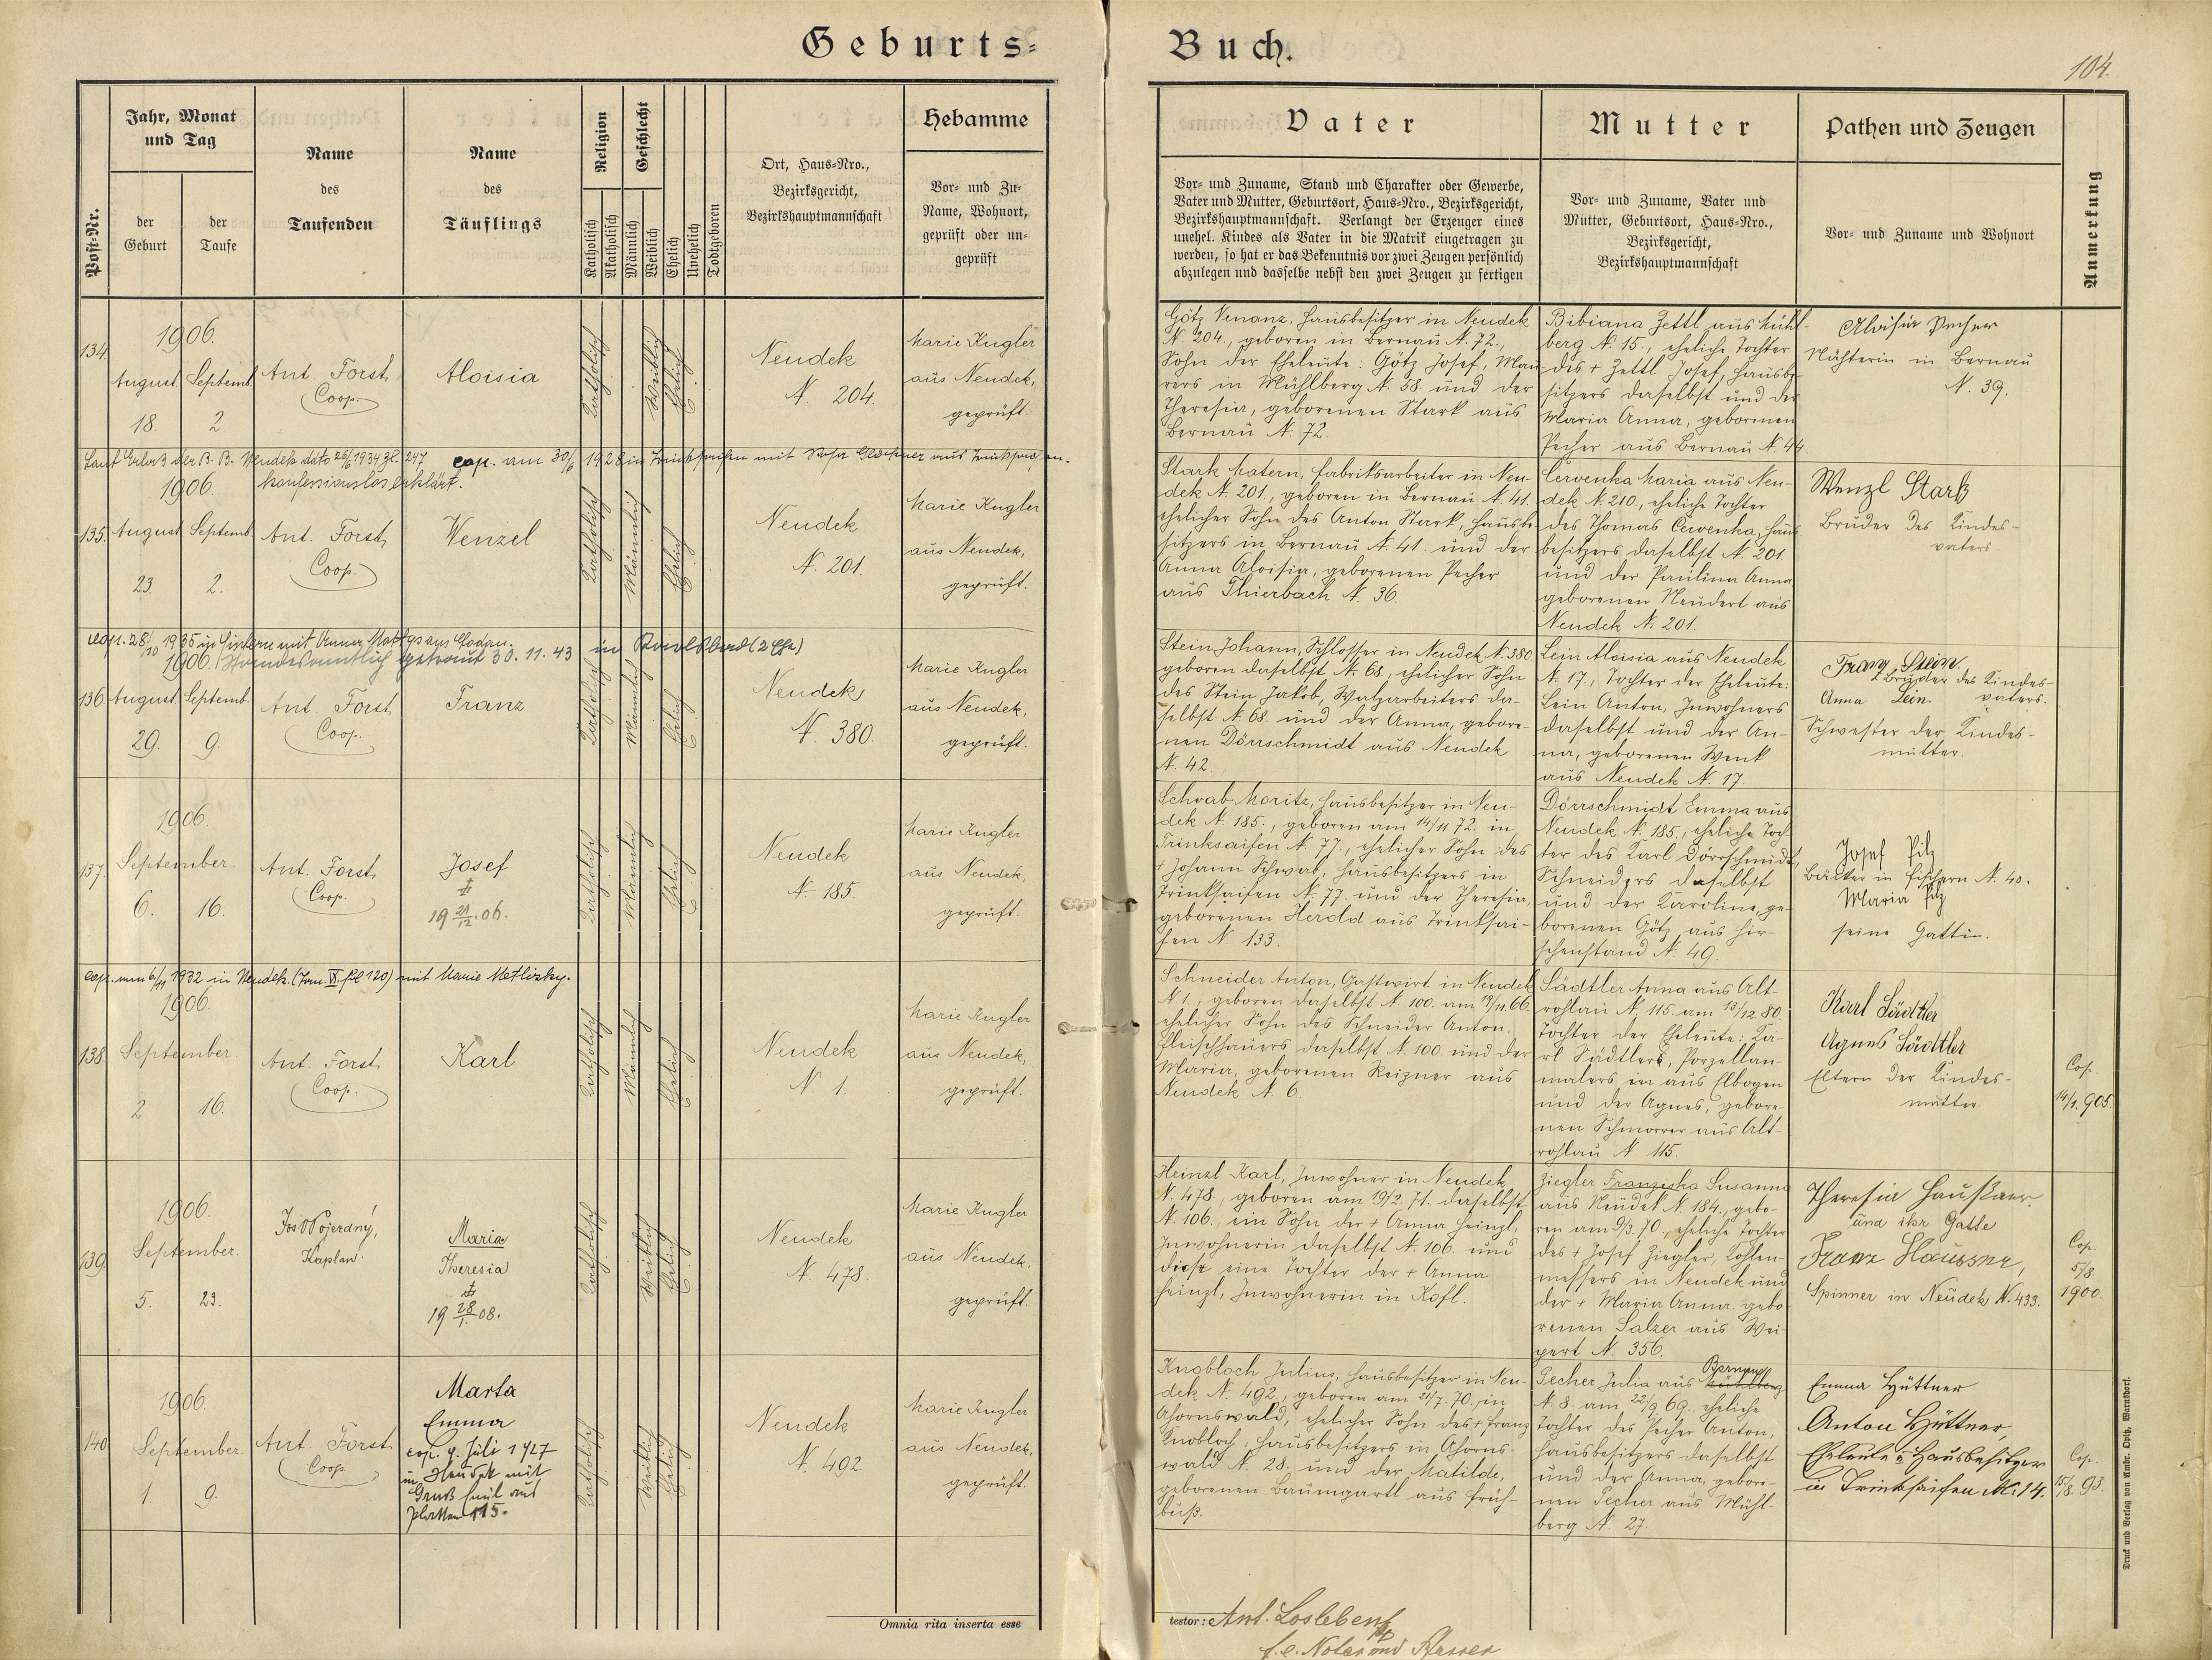 Geburts-
Buch.
104.
Post-Nr.
Jahr, Monat
und Tag
der
Geburt
der
Taufe
Name
des
Taufenden
Name
des
Täuflings
Religion
Katholisch
Akatholisch
Geschlecht
Männlich
Weiblich
Ehelich
Unehelich
Todtgeboren
Ort, Haus-Nro.,
Bezirksgericht,
Bezirkshauptmannschaft
Hebamme
Vor- und Zu-
Name, Wohnort,
geprüft oder un-
geprüft
Vater
Vor- und Zuname, Stand und Charakter oder Gewerbe,
Vater und Mutter, Geburtsort, Haus-Nro., Bezirksgericht,
Bezirkshauptmannschaft. Verlangt der Erzeuger eines
unehel. Kindes als Vater in die Matrik eingetragen zu
werden, so hat er das Bekenntnis vor zwei Zeugen persönlich
abzulegen und dasselbe nebst den zwei Zeugen zu fertigen
Mutter
Vor- und Zuname, Vater und
Mutter, Geburtsort, Haus-Nro.,
Bezirksgericht,
Bezirkshauptmannschaft
Pathen und Zeugen
Vor- und Zuname und Wohnort
Anmerkung
134.
1906.
August
18.
Septemb.
2.
Ant. Forst,
Coop.
Aloisia
Katholisch
Weiblich
Ehelich
Neudek
N. 204.
Marie Kugler
aus Neudek,
geprüft.
Götz Venanz, Hausbesitzer in Neudek
N. 204., geboren in Bernau N. 72.,
Sohn der Eheleute: Götz Josef, Mau-
rers in Mühlberg N. 58. und der
Theresia, geborenen Stark aus
Bernau N. 72.
Bibiana Zettl aus Mühl-
berg N. 15., eheliche Tochter
des + Zettl Josef, Hausbe-
sitzers daselbst und der
Maria Anna, geborenen
Pecher aus Bernau N. 44.
Aloisia Pecher
Nähterin in Bernau
N. 39.
Laut Erlaß der B. B. Neudek dato 26/6 1934 Zl. 247
konfessionslos erklärt.
cop. am 30/6 1928 in Trinksaifen mit
135.
1906.
August
23.
Septemb.
2.
Ant. Forst,
Coop.
Wenzel
Katholisch
Männlich
Ehelich
Neudek
N. 201.
Marie Kugler
aus Neudek,
geprüft.
Stark Matern, Fabriksarbeiter in Neu-
dek N. 201., geboren in Bernau N. 41.
ehelicher Sohn des Anton Stark, Hausbe-
sitzers in Bernau N. 41. und der
Anna Aloisia, geborenen Pecher
aus Thierbach N. 36.
Červenka Maria aus Neu-
dek N. 210., eheliche Tochter
des Thomas Cervenka, Haus-
besitzers daselbst N. 201.
und der Paulina Anna
geborenen Neudert aus
Neudek N. 201.
Wenzl Stark
Bruder des Kindes-
vaters.
cop. 28/10 1935 in Fischern mit Anna
Standesamtlich getraut 30. 11. 43 in Karlsbad (2 Ehe)
136.
1906.
August
29.
Septemb.
9.
Ant. Forst
Coop.
Franz
Katholisch
Männlich
Ehelich
Neudek
N. 380.
Marie Kugler
aus Neudek,
geprüft.
Stein Johann, Schlosser in Neudek N. 380
geboren daselbst N. 68, ehelicher Sohn
des Stein Jakob, Walzarbeiters da-
selbst N. 68. und der Anna, gebore-
nen Dörrschmidt aus Neudek
N. 42.
Lein Aloisia aus Neudek
N. 17., Tochter der Eheleute:
Lein Anton, Inwohners
daselbst und der An-
na, geborenen Wenk
aus Neudek N. 17.
Franz Stein
Bruder des Kindes-
vaters.
Anna Lein.
Schwester der Kindes-
mutter.
137.
1906.
September.
6. 16.
Ant. Forst,
Coop.
Josef
19 21/12 06.
Katholisch
Männlich
Ehelich
Neudek
N. 185.
Marie Kugler
aus Neudek,
geprüft.
Schwab Moritz, Hausbesitzer in Neu-
dek N. 185., geboren am 14/11. 72. in
Trinksaifen N. 77., ehelicher Sohn des
+ Johann Schwab, Hausbesitzers in
Trinksaifen N. 77. und der Theresia,
geborenen Herold aus Trinksai-
fen N. 133.
Dörrschmidt Emma aus
Neudek N. 185., eheliche Toch-
ter des Karl Dörrschmidt,
Schneiders daselbst
und der Karoline, ge-
borenen Götz aus Hir-
schenstand N. 49.
Josef Pilz
Bäcker in Fischern N. 40.
Maria Pilz
seine Gattin.
cop. am 6/11 1932 in Neudek. (Trau. IX. fol 120) mit Marie Metlizky.
138.
1906.
September.
2 16.
Ant. Forst
Coop.
Karl
Katholisch
Männlich
Ehelich
Neudek
N 1.
Marie Kugler
aus Neudek,
geprüft.
Schneider Anton, Gastwirt in Neudek
N 1., geboren daselbst N. 100. am 19/11. 66.
ehelicher Sohn des Schneider Anton,
Fleischhauers daselbst N. 100. und der
Maria, geborenen Reizner aus
Neudek N. 6.
Sädtler Anna aus Alt-
rohlau N. 115. am 13/12. 80.
Tochter der Eheleute: Ka-
rl Sädtlers, Porzellan-
malers aus Elbogen
und der Agnes, gebore-
nen Schmorrer aus Alt-
rohlau N. 115.
Karl Sädtler
Agnes Sädtler
Eltern der Kindes-
mutter.
Cop.
14/1. 905.
139.
1906.
September.
5. 23.
Kaplan.
Maria
Theresia
19 28/1. 08.
Katholisch
Weiblich
Ehelich
Neudek
N. 478.
Marie Kugler
aus Neudek,
geprüft.
Heinzl Karl, Inwohner in Neudek
N. 478., geboren am 19/2. 71. daselbst
N. 106., ein Sohn der + Anna Heinzl,
Inwohnerin daselbst N. 106. und
diese eine Tochter der + Anna
Heinzl, Inwohnerin in Kofl.
Ziegler Franziska Susanna
aus Neudek N. 184., gebo-
ren am 9/3. 70., eheliche Tochter
des + Josef Ziegler, Kohlen-
messers in Neudek und
der + Maria Anna gebo-
renen Salzer aus Wei-
pert N. 356.
Theresia Haußner
und ihr Gatte
Franz Haussner,
Spinner in Neudek N. 433.
Cop.
5/8.
1900.
140.
1906.
September.
1. 9.
Ant. Forst
Coop.
Marta
Emma
cop. 9. Juli 1927
in Neudek mit
Gruß Emil aus
Platten 115.
Katholisch
Weiblich
Ehelich
Neudek
N. 492.
Marie Kugler
aus Neudek,
geprüft.
Knobloch Julius, Hausbesitzer in Neu-
dek N. 492., geboren am 21/7. 70. in
Ahornswald, ehelicher Sohn des + Franz
Knobloch, Hausbesitzers in Ahorns-
wald N. 28. und der Matilde,
geborenen Baumgartl aus Früh-
buß.
Pecher Julia aus Mühlberg Bernau
N. 8. am 22/9. 69. eheliche
Tochter des Pecher Anton,
Hausbesitzers daselbst
und der Anna, gebore-
nen Pecher aus Mühl-
berg N. 27.
Emma Hüttner
Anton Hüttner,
Eheleute u. Hausbesitzer
in Trinksaifen N. 14.
Cop.
15/8. 93.
Omnia rita inserta esse
testor: Ant. Loslebenf
Druck und Verlag von Ambr. Opitz, Warnsdorf.